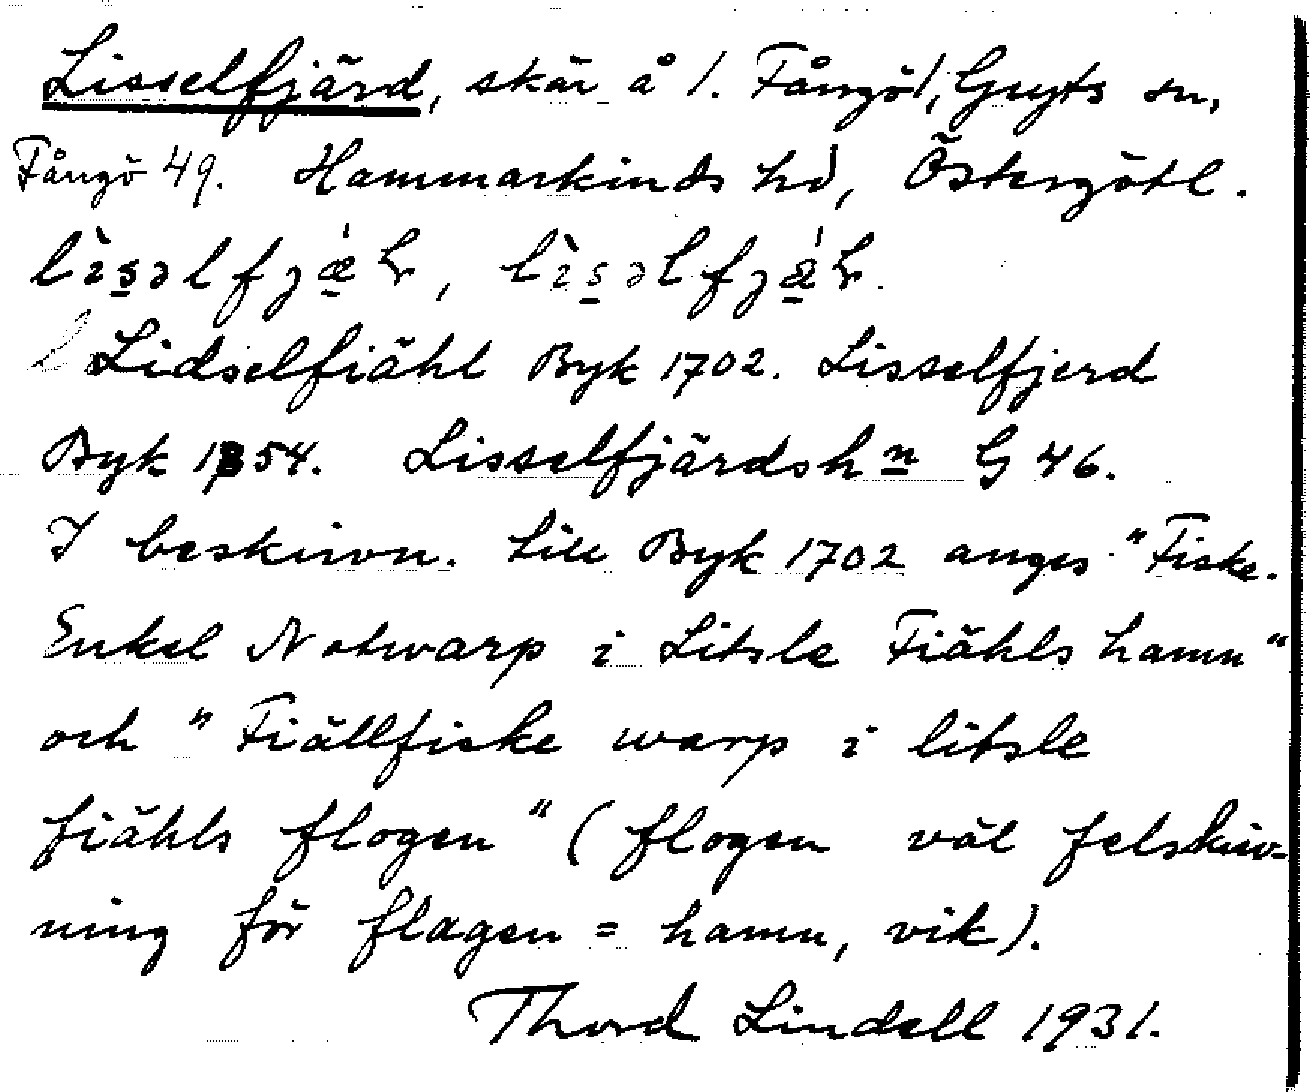 Lisselfjärd, skär å 1. Fångö1, Gryts sn,
Fångö 49. Hammarkinds hd, Östergötl.
Lidselfiähl Byk 1702. Lisselfjerd
Byk 1854. Lisselfjärdshn G 46.
I beskrivn. till Byk 1702 anges "Fiske.
Enkel Notwarp i Litsle Fiähls hamn"
och "Fiällfiske warp i litsle
fiähls flogen" (flogen väl felskriv-
ning för flagen = hamn, vik).
Thord Lindell 1931.